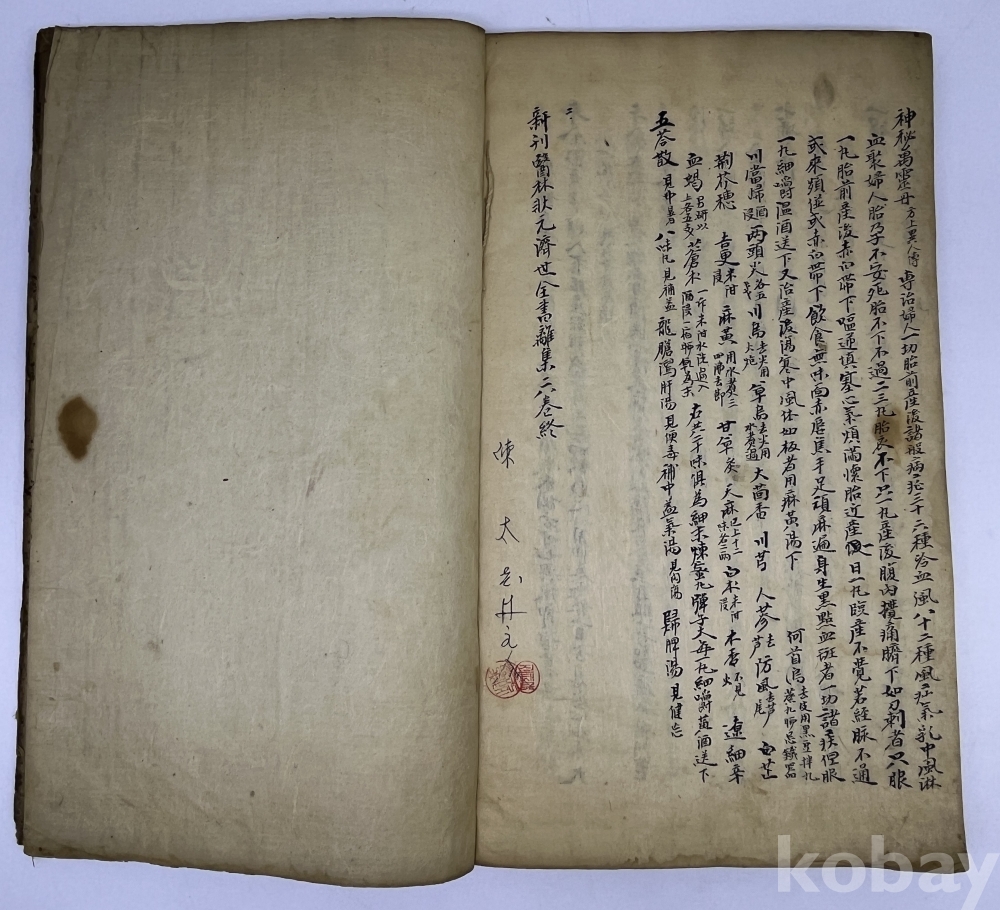 神秘萬靈丹方上異人傳專治婦人一切胎前産後諸般病症三十六種冷血風八十二種風疰氣乳中風淋
血聚婦人胎孕不安死胎不下不過二三丸胎衣不下只一丸産後腹內攪痛臍下如刀刺者只服
一丸胎前産後赤白帶下嘔逆塡塞心氣煩滿懷胎近産日一丸臨産不覺若經脈不通
或來頻併或赤白帶下飲食無味面赤唇焦手足頑麻遍身生黑點血斑者一切諸疾但服
一丸細嚼溫酒送下又治産後傷寒中風体如板者用麻黃湯下 何首烏去皮用黑豆拌九蒸九晒忌鐵器
川當歸酒浸兩頭尖各五川烏去尖用火炮草烏去尖用水煮過大茴香川芎人參去芦防風去芦尾白芷
荊芥穗吉更米泔浸麻黃用水煮三四沸去節甘草炙天麻已上十二味各二兩白朮米泔浸木香不見火遼細辛
血蝎另研以上各五蒼朮一斤米泔水酒浸右共二十味俱為細末煉蜜丸彈子大每一丸細嚼溫酒送下
五苓散見中暑八味丸見補益龍膽瀉肝湯見便毒補中益氣湯見內傷歸脾湯見健忘
新刊醫林狀元濟世全書離集六卷終
陳太
kobay